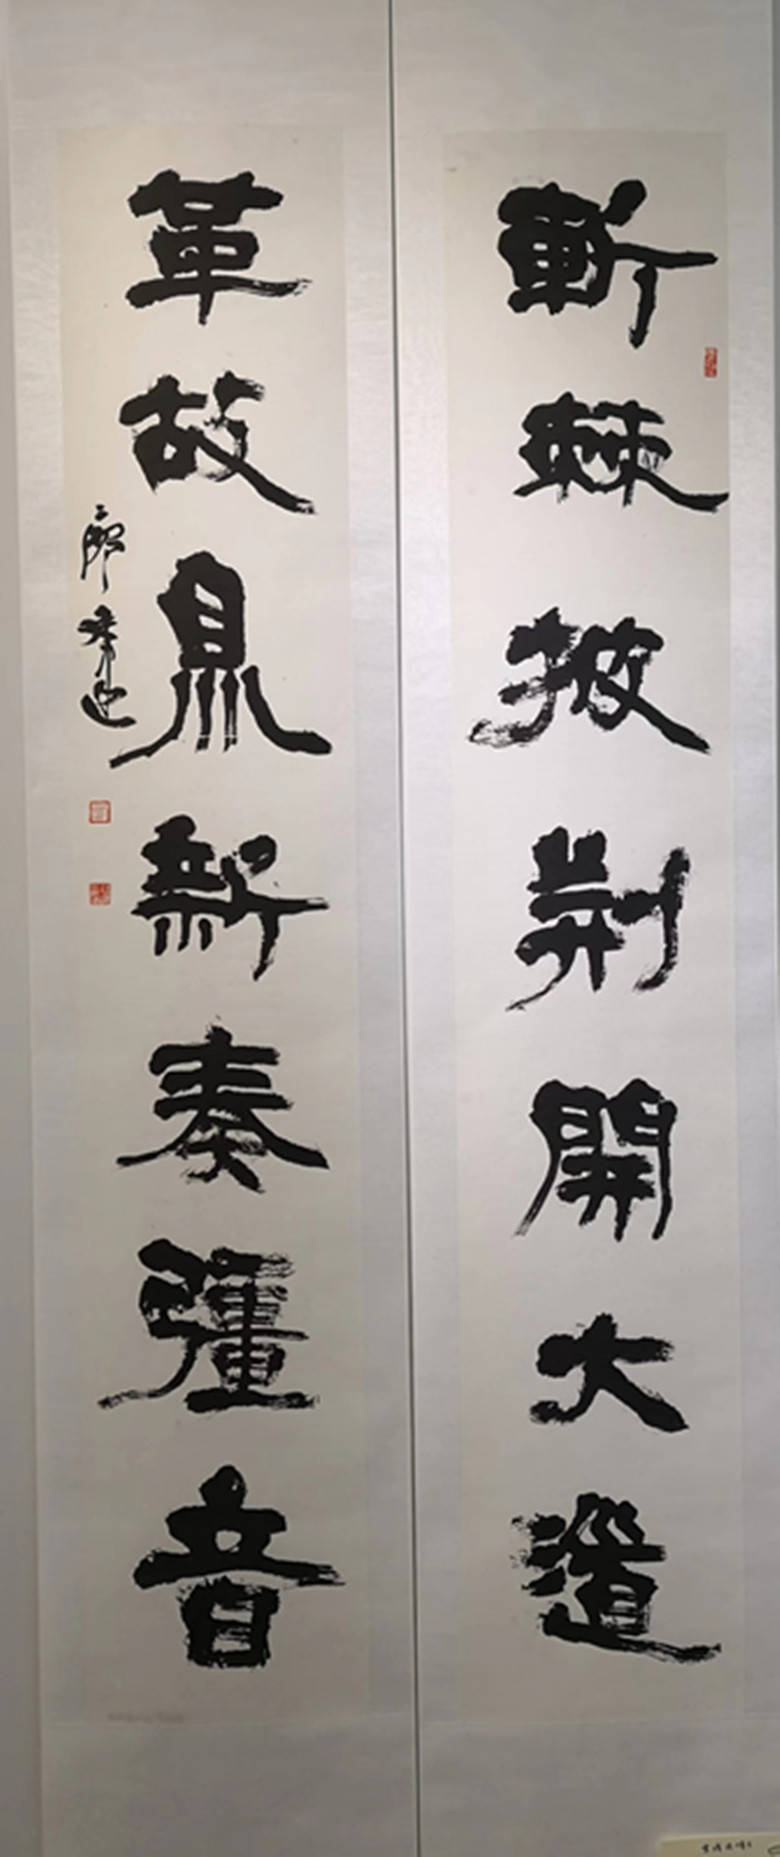 斬棘披荆開大道
革故鼎新奏彊音